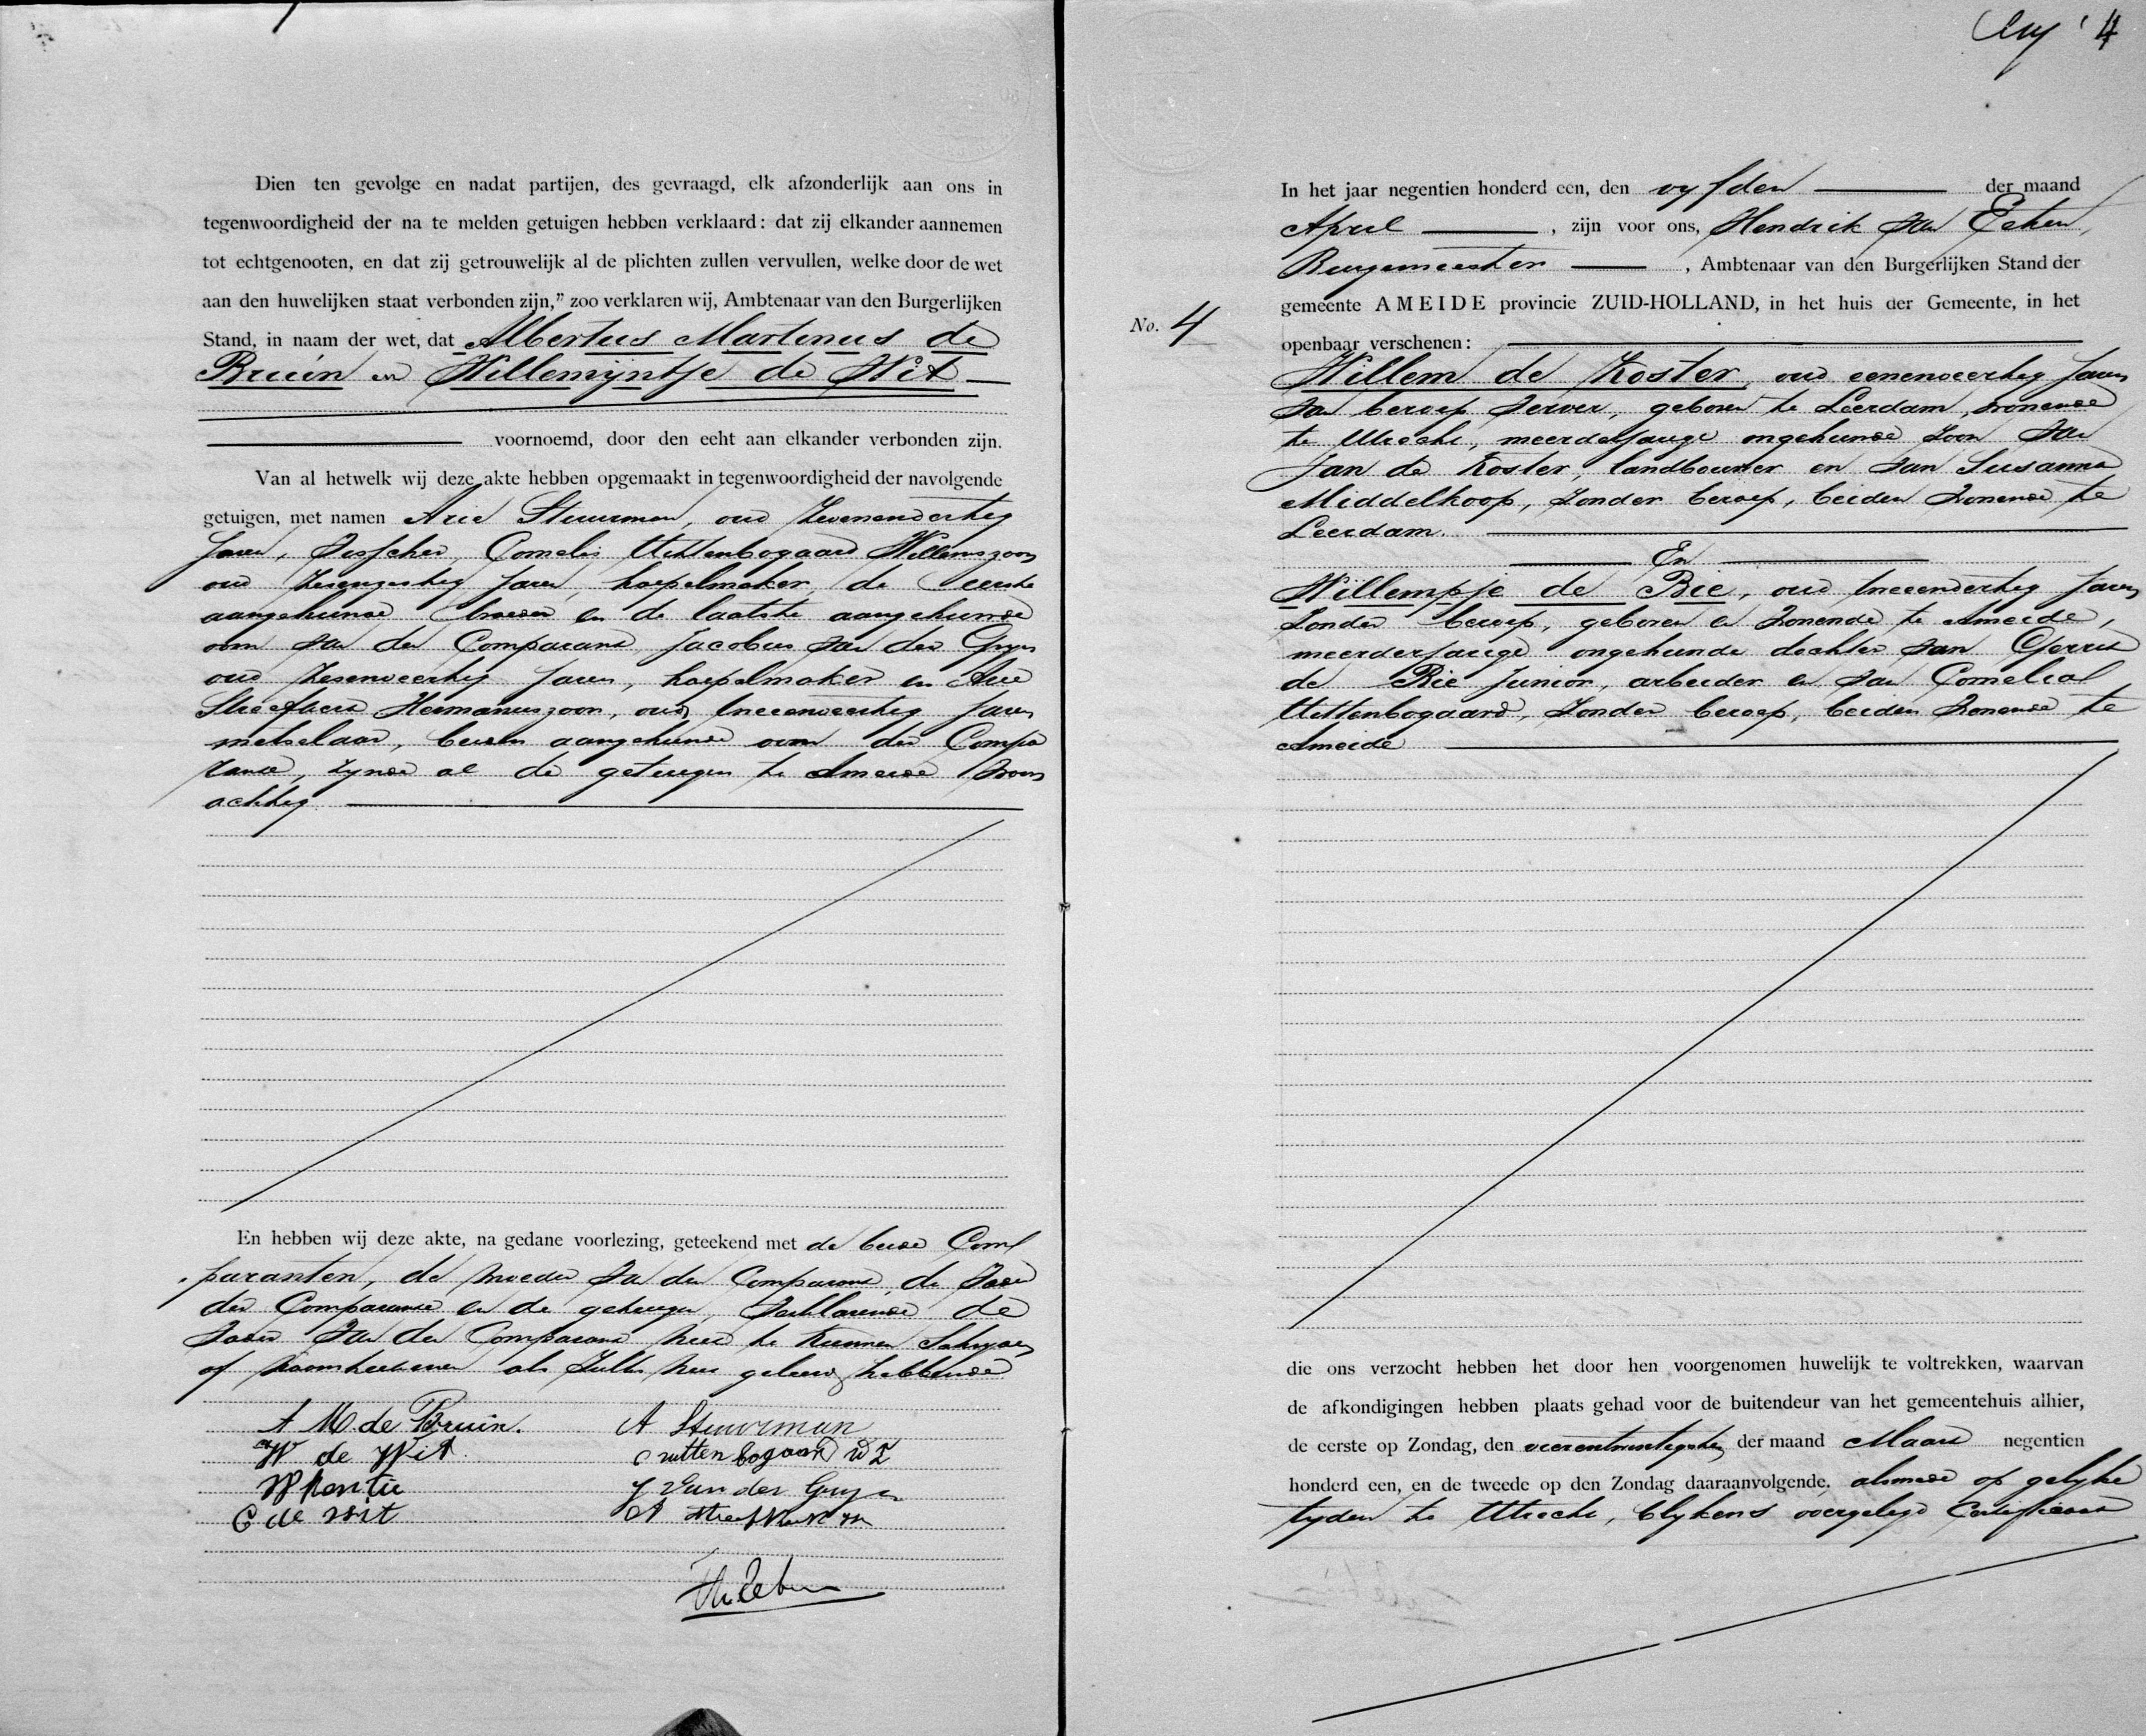 Dien ten gevolge en nadat partijen, des gevraagd, elk afzonderlijk aan ons in
tegenwoordigheid der na te melden getuigen hebben verklaard: dat zij elkander aannemen
tot echtgenooten, en dat zij getrouwelijk al de plichten zullen vervullen, welke door de wet
aan den huwelijken staat verbonden zijn,” zoo verklaren wij, Ambtenaar van den Burgerlijken
Stand, in naam der wet, dat Albertus Martinus de
Bruin en Willemijntje de Wit
voornoemd, door den echt aan elkander verbonden zijn.
Van al hetwelk wij deze akte hebben opgemaakt in tegenwoordigheid der navolgende
getuigen, met namen Arie Stuurman, oud zevenendertig
Jaren, visscher, Cornelis Uittenbogaard Willemszoon
oud zesenzestig Jaren, hoepelmaker, de eerste
aangehuwde broeder en de laatste aangehuwde
oom van den Comparant, Jacobus van der Gryn
oud zesenveertig Jaren, hoepelmaker en Arie
Streefkerk Hermanuszoon, oud tweeenveertig Jaren
metselaar, beiden aangehuwde oom der Compa
rante, zynde al de getuigen te Ameide woon
achtig
En hebben wij deze akte, na gedane voorlezing, geteekend met de beide Com
paranten, de moeder van den Comparant, de vader
der Comparante en de getuigen, verklarende de
vader van den Comparant niet te kunnen schryven
of naamteekenen als zulks niet geleerd hebbende
A M de Bruin. A Stuurman
W de Wit C uittenbogaard WZ
W Kentie J van der Gryn
C de Wit A Streefkerk
Aug '4
In het jaar negentien honderd een, den vyfden der maand
April, zijn voor ons, Hendrik van Eeten,
Burgemeester, Ambtenaar van den Burgerlijken Stand der
gemeente AMEIDE provincie ZUID-HOLLAND, in het huis der Gemeente, in het
No. 4
openbaar verschenen:
Willem de Koster, oud eenenveertig Jaren
van beroep verver, geboren te Leerdam, wonende
te Utrecht, meerderjarige ongehuwde zoon van
Jan de Koster, landbouwer en van Susanna
Middelkoop, zonder beroep, beiden wonende te
Leerdam.
En
Willempje de Bie, oud tweeendertig Jaren
zonder beroep, geboren en wonende te Ameide,
meerderjarige ongehuwde dochter van Gerrit
de Bie Junior, arbeider en van Cornelia
Uittenbogaard, zonder beroep, beiden wonende te
Ameide
die ons verzocht hebben het door hen voorgenomen huwelijk te voltrekken, waarvan
de afkondigingen hebben plaats gehad voor de buitendeur van het gemeentehuis alhier,
de eerste op Zondag, den vierentwintigsten der maand Maart negentien
honderd een, en de tweede op den Zondag daaraanvolgende, alsmede op gelyke
tyden te Utrecht, blykens overgelegd Certificaat